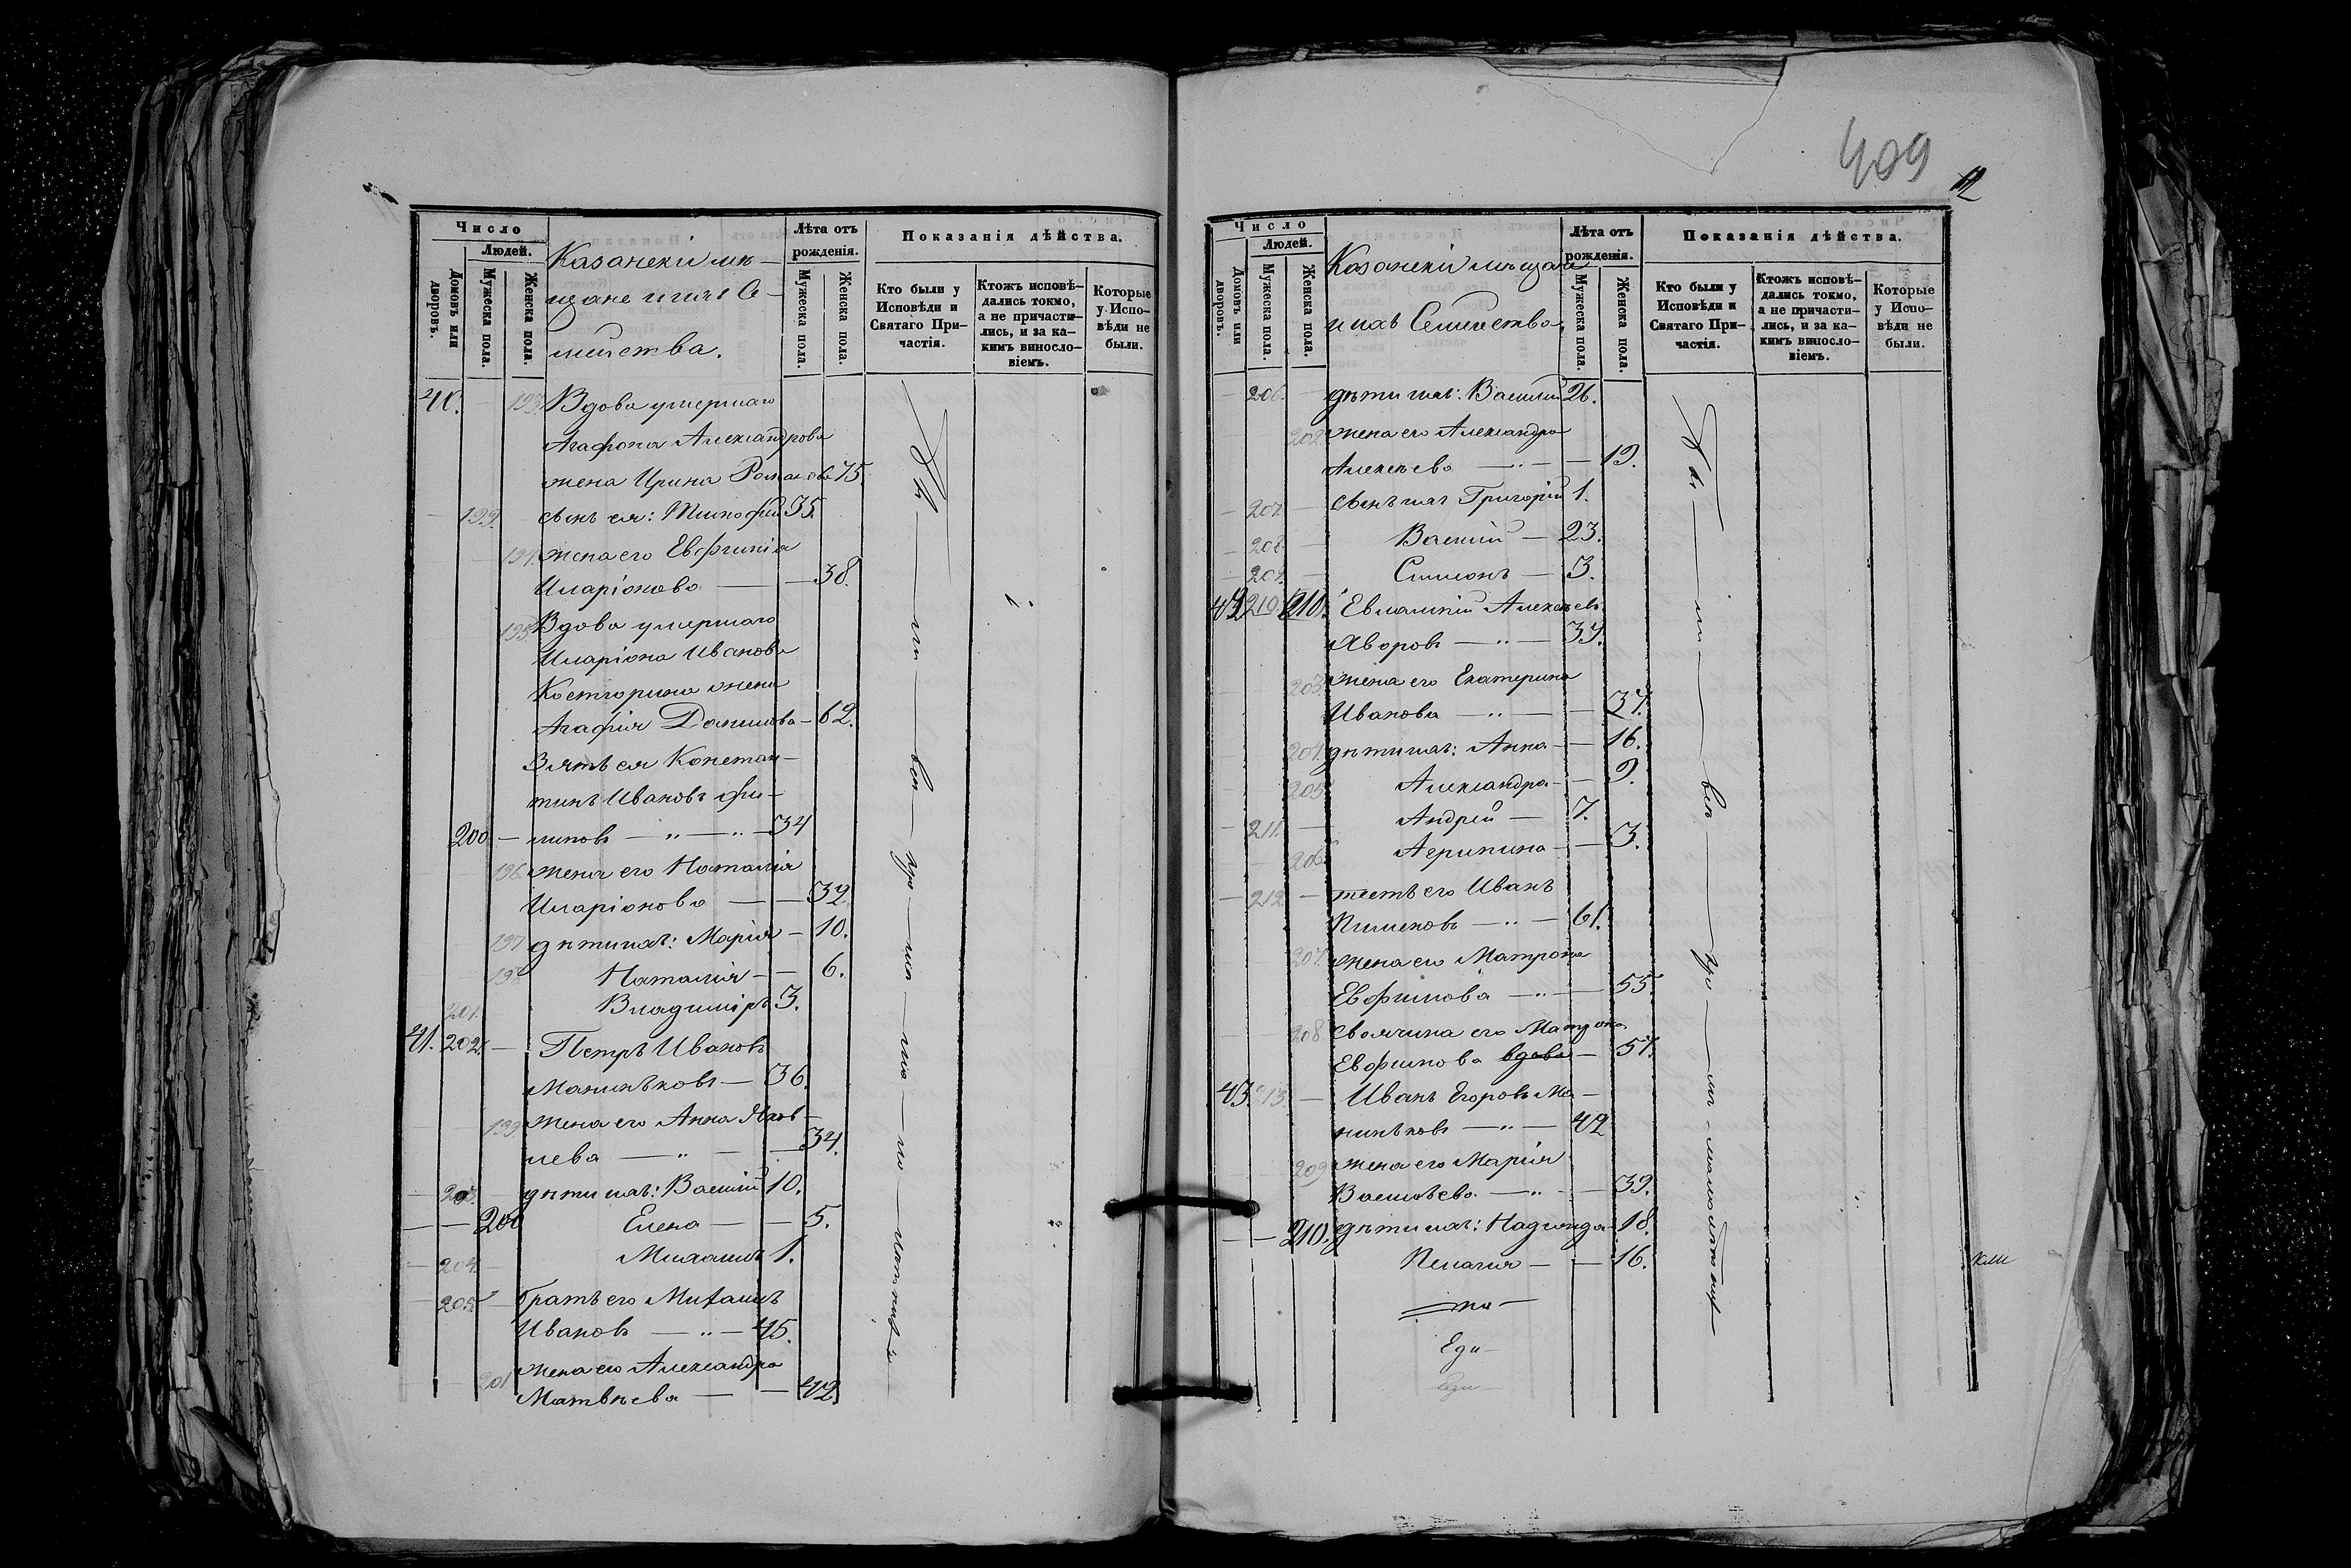 Число
Людей.
Домовъ или дворовъ.
Мужеска пола.
Женска пола.
Казанскіи мѣ-
щане и ихъ Се-
мейства.
Лѣта отъ рожденія.
Мужеска пола.
Женска пола.
Показанія дѣйства.
Кто были у Исповѣди и Святаго При-частія.
Ктожъ исповѣ-дались токмо, а не причасти-лись, и за ка-кимъ винословіемъ.
Которые у Испо-вѣди не были.
40. — 193. Вдова умершаго
Агафона Александрова
жена Ирина Романова 75.
— 199. сынъ ея: Тимофей 35.
194. жена его Евфимія
Иларіонова — — 38.
195. Вдова умершаго
Иларіона Иванова
жена
Агафія Данилова — 62.
Зять ея Констан-
тинъ Ивановъ Фи-
200 — липовъ — " — " — 34
196. жена его Наталія
Иларіонова — — 32
197 дѣти ихъ: Марія — 10.
198 Наталія — — 6.
201. Владиміръ 3.
41. 202. — Петръ Ивановъ
Маниньковъ — 36.
199. жена его Анна Яков-
лева — " — — 34.
— 203. дѣти ихъ: Василій 10.
— — 200 Елена — — 5.
— 204. Михаилъ 1.
— 205. — братъ его Михаилъ
Ивановъ — " — 45.
201 жена его Александра
Матвѣева — — 42.
409
12
Число
Людей.
Домовъ или дворовъ.
Мужеска пола.
Женска пола.
Казанскіи мѣщане
и ихъ Семейства.
Лѣта отъ рожденія.
Мужеска пола.
Женска пола.
Показанія дѣйства.
Кто были у Исповѣди и Святаго При-частія.
Ктожъ исповѣ-дались токмо, а не причасти-лись, и за ка-кимъ винословіемъ.
Которые у Испо-вѣди не были.
— 206. — дѣти ихъ: Василій 26.
202. жена его Александра
Алексѣева — " — — 19.
— 207. — сынъ ихъ Григорій 1.
— 208. — Василій — 23.
— 209. — Симеонъ — 3.
42 210. 210. Евлампій Алексѣевъ
Яворовъ — " — 37.
203. жена его Екатерина
Иванова — " — — 37.
204. дѣти ихъ: Анна — — 16.
205. Александра — — 9.
— 211. — Андрей — 7.
206. Агрипина — — 3.
— 212. — тесть его Иванъ
Пименовъ — " — 61.
207. жена его Матрона
Евфимова — " — — 55.
208. своячина его Матрона
Евфимова вдова — 57.
43. 213. — Иванъ Егоровъ Ма-
ниньковъ — " — 42
209 жена его Марія
Васильева — " — — 39.
— — 210. дѣти ихъ: Надежда 18.
Пелагія — — 16.